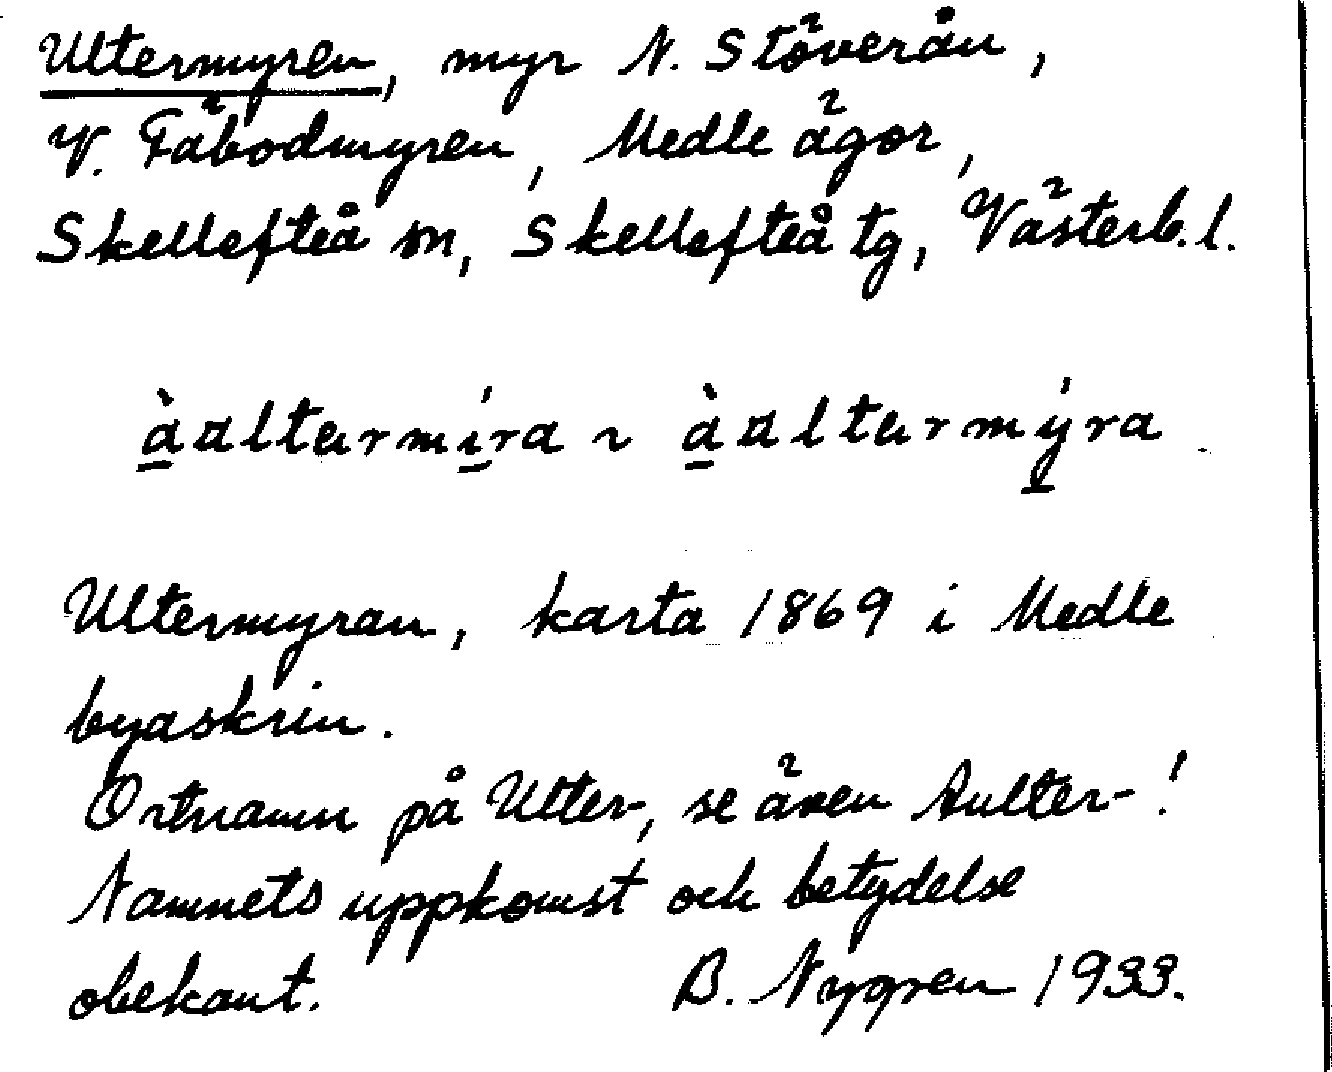 Ultermyren, myr N. Stöverån,
V. Fäbodmyren, Medle ägor,
Skellefteå sn, Skellefteå tg, Västerb. l.
àαltərmíra ~ àαltərmýra
Ultermyran, karta 1869 i Medle
byaskrin.
Ortnamn på Ulter-, se även Aulter-!
Namnets uppkomst och betydelse
obekant. B. Nygren 1933.